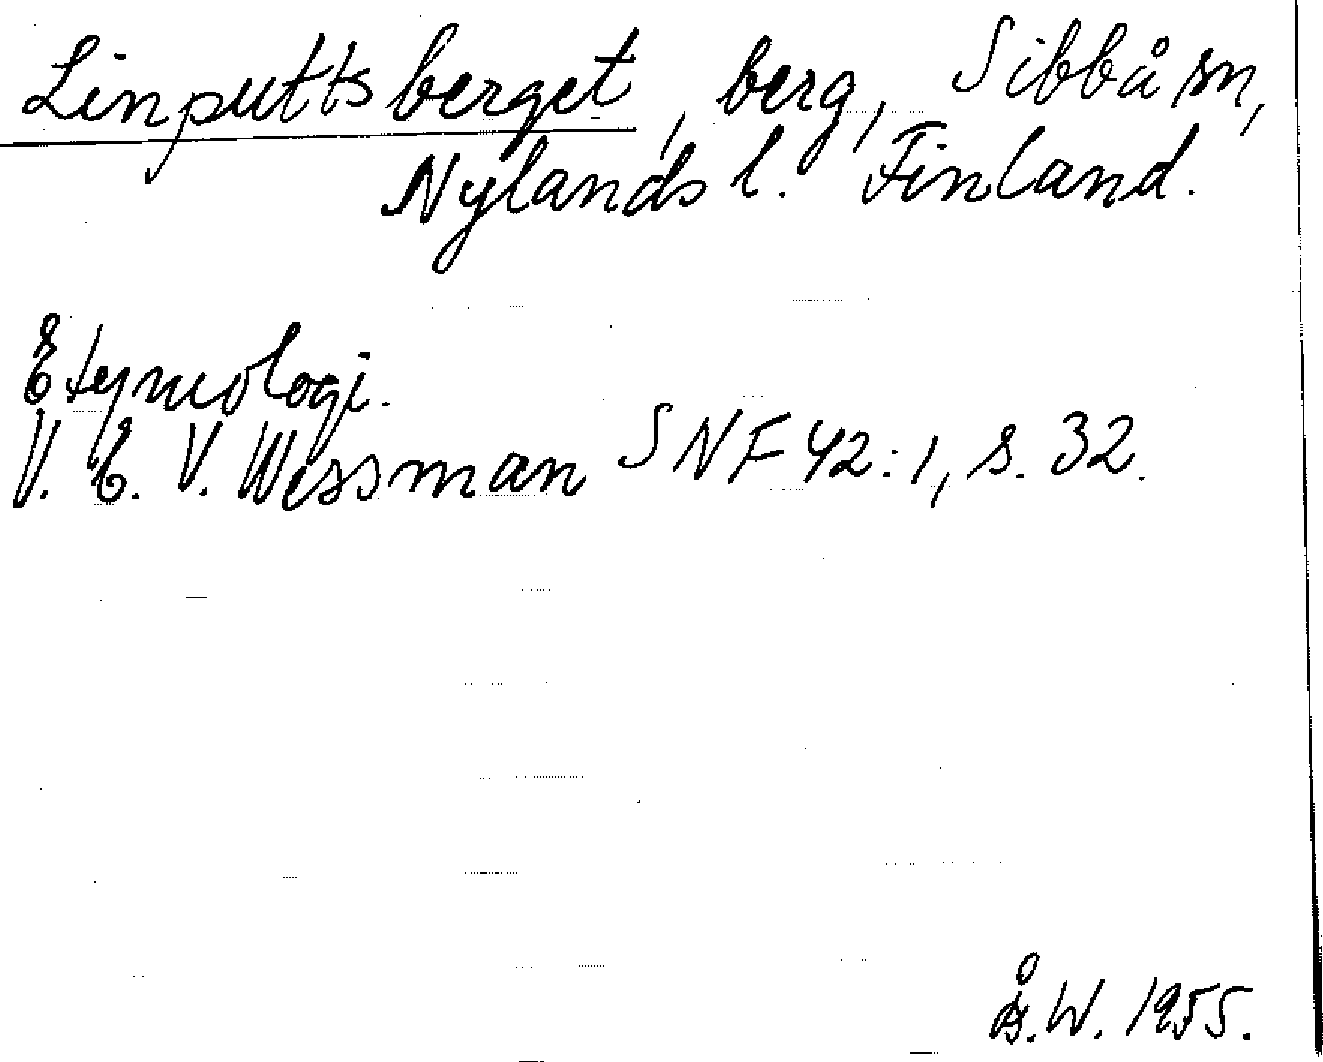 Linputtsberget, berg, Sibbå sn,
Nylands l. Finland.
Etymologi.
V. E. V. Wessman SNF 42:1, s. 32.
Å.W. 1955.